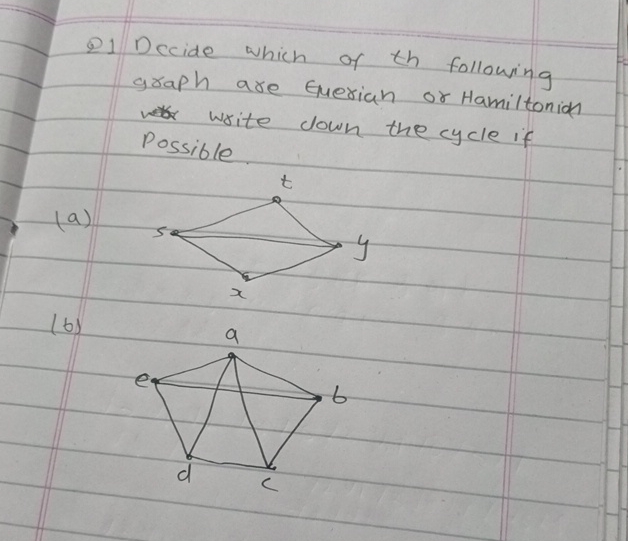 Q1 Decide which of th following
graph are Euerian or Hamiltonian
write down the cycle if
Possible.
t
(a)
s
y
x
(b)
a
e
b
d
c